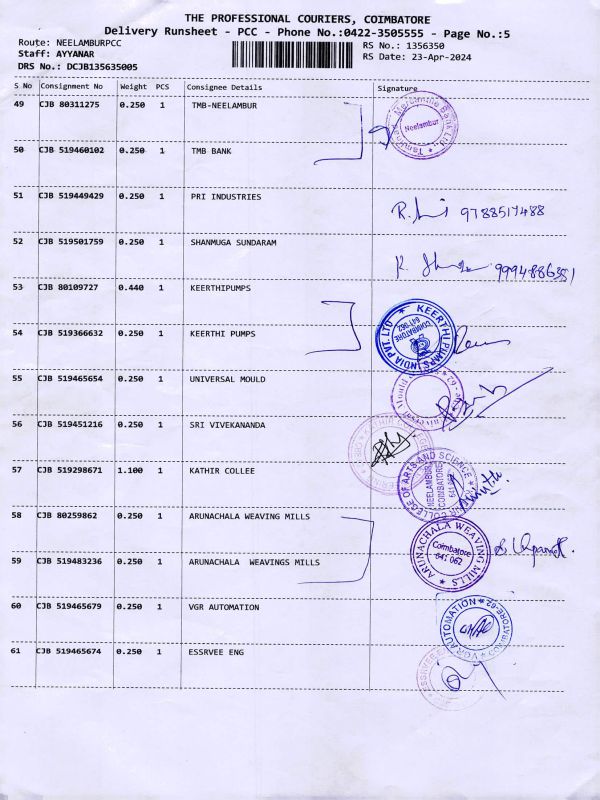 THE PROFESSIONAL COURIERS, COIMBATORE
Delivery Runsheet - PCC - Phone No.:0422-3505555 - Page No.:5
Route: NEELAMBURPCC
RS No.: 1356350
Staff: AYYANAR
RS Date: 23-Apr-2024
DRS No.: DCJB135635005
S No Consignment No Weight PCS Consignee Details Signature
49 CJB 80311275 0.250 1 TMB-NEELAMBUR
Mercantile Bank Ltd.
Neelambur
50 CJB 519460102 0.250 1 TMB BANK
51 CJB 519449429 0.250 1 PRI INDUSTRIES
9788517488
52 CJB 519501759 0.250 1 SHANMUGA SUNDARAM
9994886351
53 CJB 80109727 0.440 1 KEERTHIPUMPS
KEERTHI PUMPS INDIA PVT. LTD
COIMBATORE
641 062
54 CJB 519366632 0.250 1 KEERTHI PUMPS
55 CJB 519465654 0.250 1 UNIVERSAL MOULD
56 CJB 519451216 0.250 1 SRI VIVEKANANDA
57 CJB 519298671 1.100 1 KATHIR COLLEE
COLLEGE OF ARTS AND SCIENCE
NEELAMBUR
COIMBATORE
58 CJB 80259862 0.250 1 ARUNACHALA WEAVING MILLS
ARUNACHALA WEAVING MILLS
Coimbatore
641 062
59 CJB 519483236 0.250 1 ARUNACHALA WEAVINGS MILLS
60 CJB 519465679 0.250 1 VGR AUTOMATION
VGR AUTOMATION COIMBATORE-62
61 CJB 519465674 0.250 1 ESSRVEE ENG